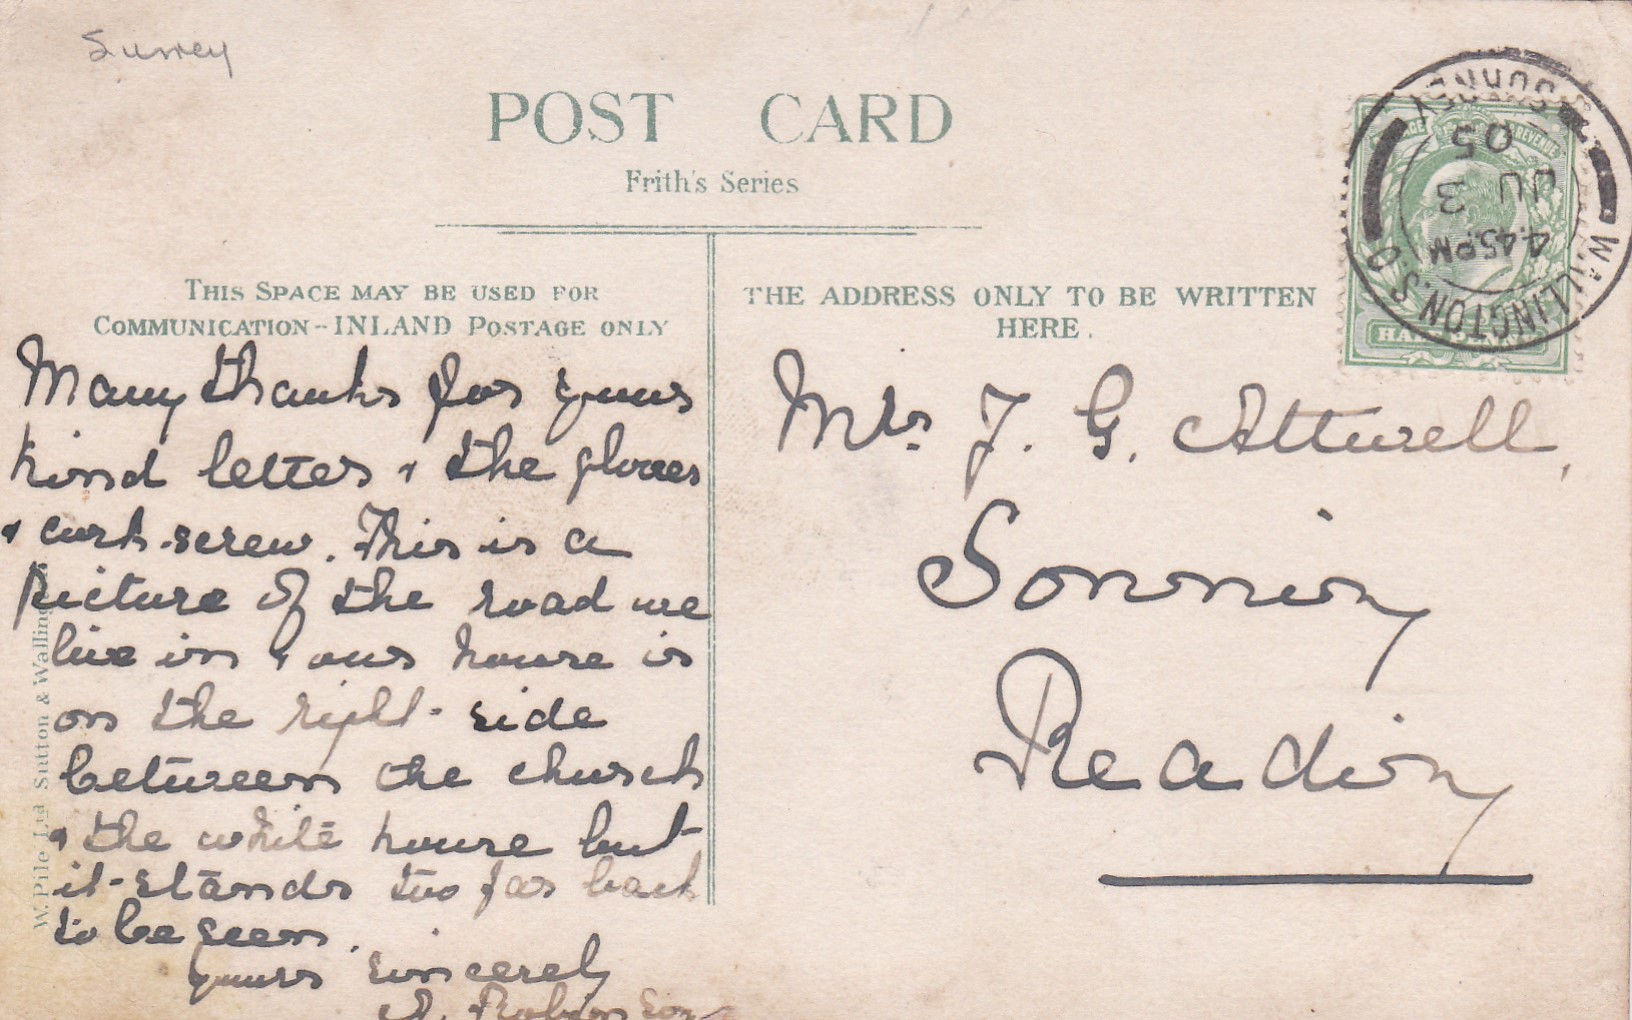 Surrey
POST CARD
Frith's Series
THIS SPACE MAY BE USED FOR
COMMUNICATION - INLAND POSTAGE ONLY
Many thanks for yours
kind letter & the gloves
& cork-screw. This is a
picture of the road we
live in & our house is
on the right side
between the church
& the white house but
it stands too far back
to be seen.
yours sincerely
A. Robinson
THE ADDRESS ONLY TO BE WRITTEN
HERE.
Mrs. J. G. Attwell,
Sonning
Reading
WALLINGTON. S.O
SURREY
4.45PM
JU 3
05
POSTAGE REVENUE
W. Pile Ltd Sutton & Walling